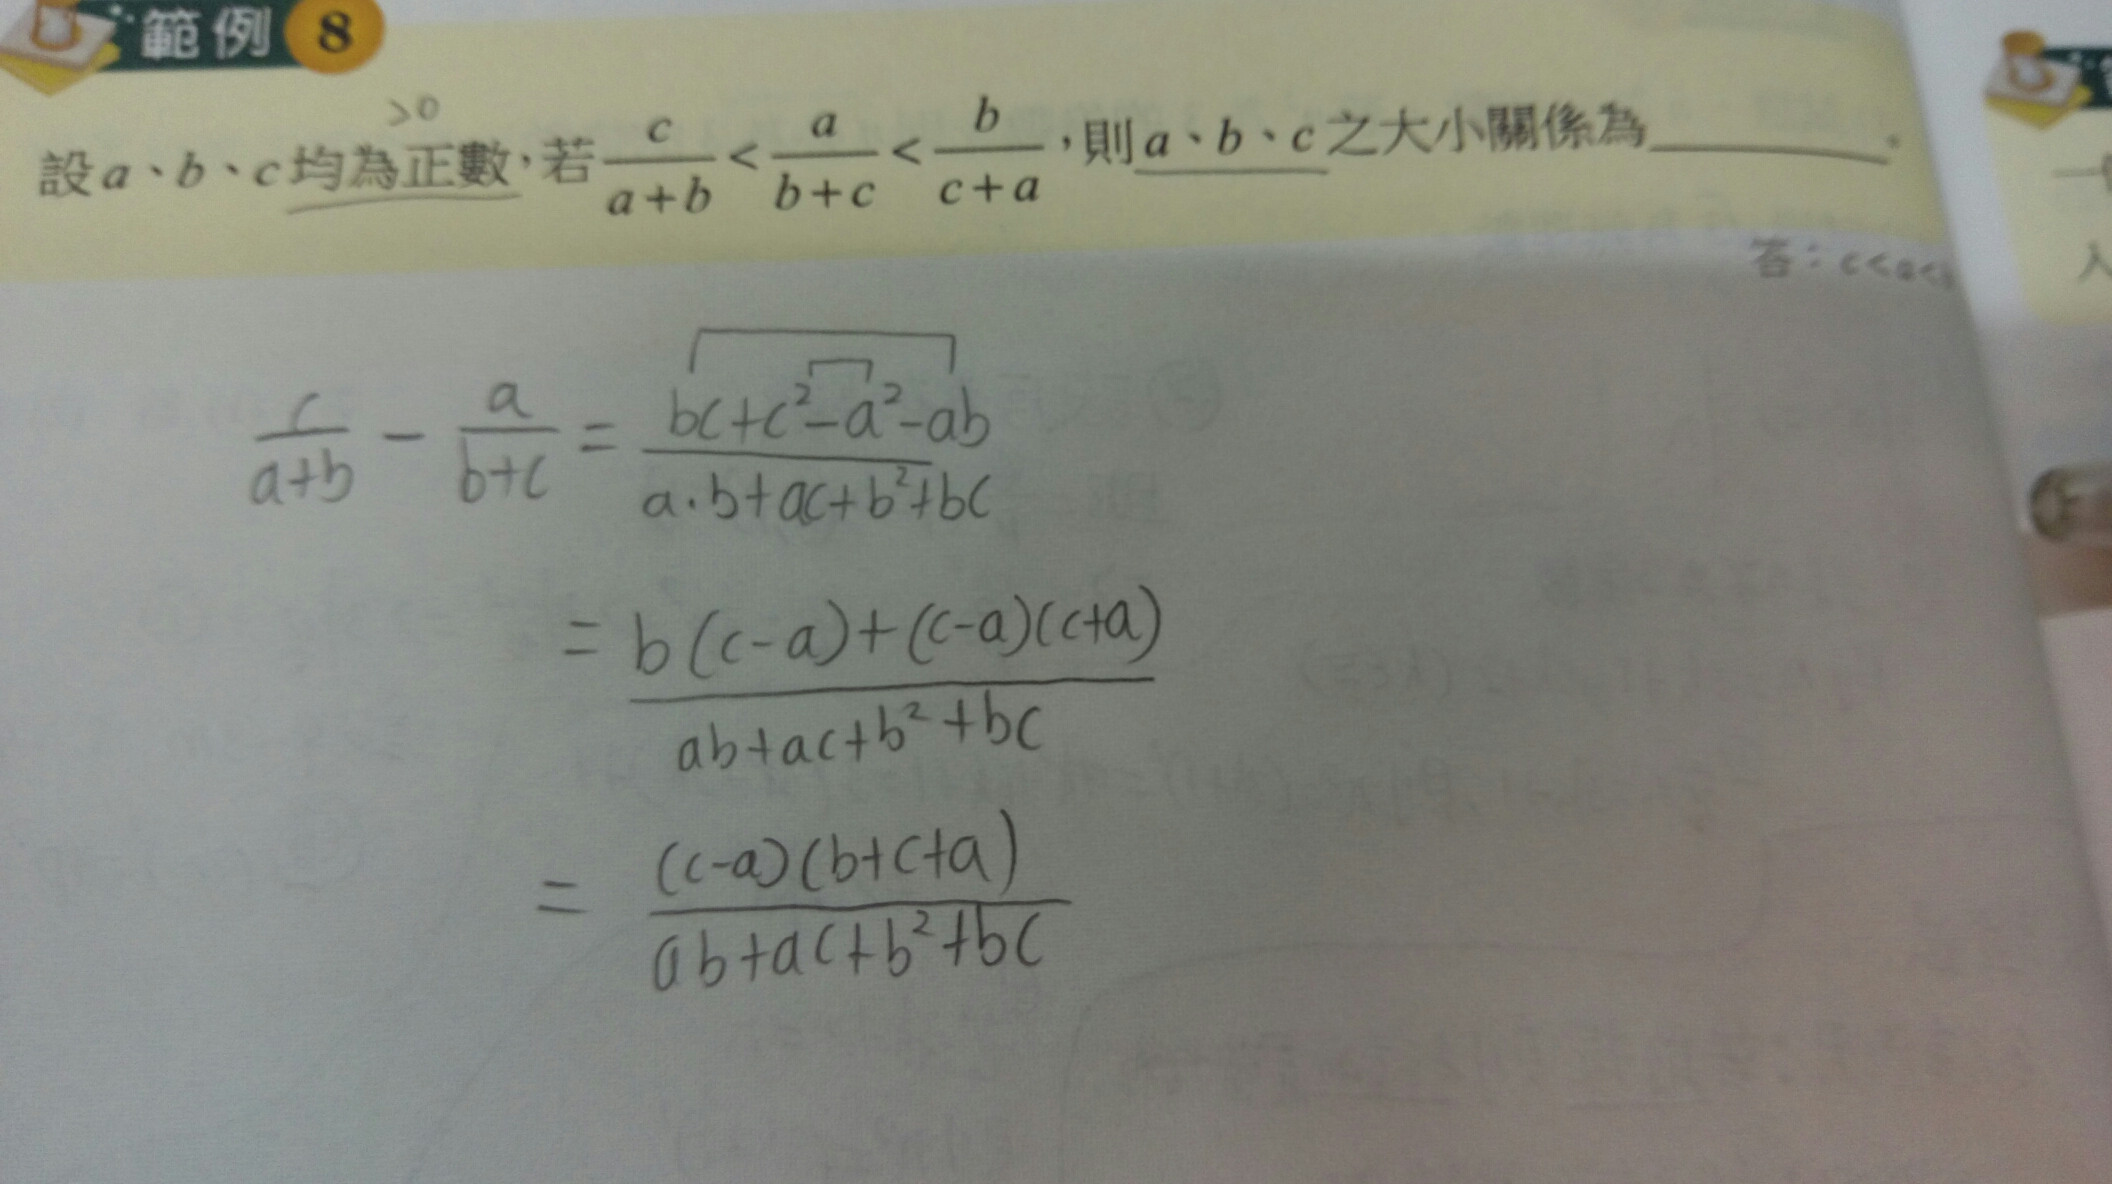 範例 8
>0
設 a、b、c 均為正數，若 c/(a+b) < a/(b+c) < b/(c+a)，則 a、b、c 之大小關係為________。
答：c<a<
c/(a+b) - a/(b+c) = (bc+c²-a²-ab)/(a·b+ac+b²+bc)
= (b(c-a)+(c-a)(c+a))/(ab+ac+b²+bc)
= ((c-a)(b+c+a))/(ab+ac+b²+bc)